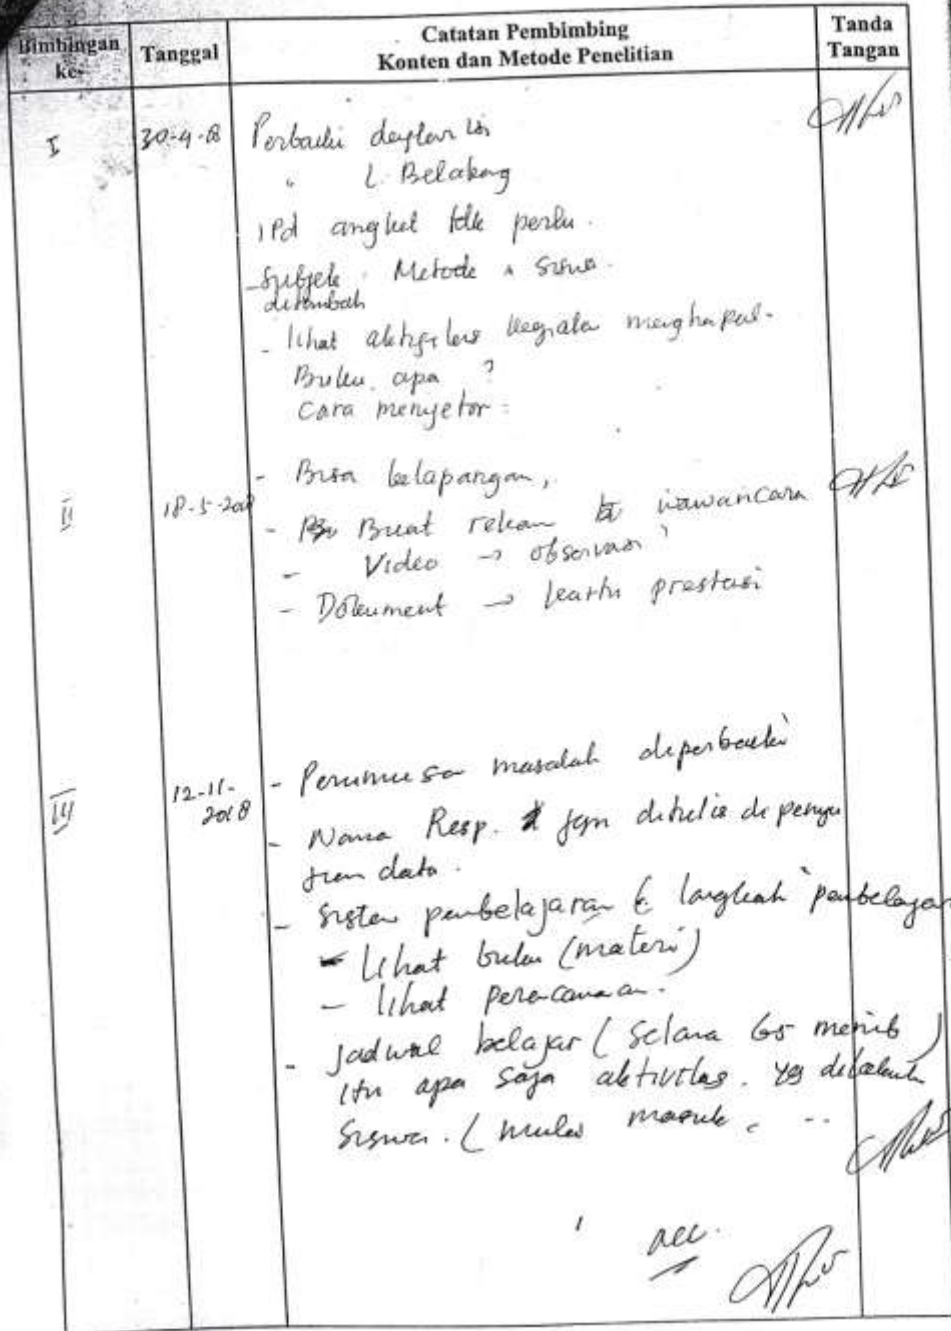 Bimbingan ke-
Tanggal
Catatan Pembimbing
Konten dan Metode Penelitian
Tanda Tangan
I
30-4-18
Perbaiki daftar isi
" L. Belakang
IPd angket tdk perlu.
- Subjek. Metode Siswa.
ditambah
- lihat aktifitas kegiatan menghapal.
Buku apa ?
Cara menyetor =
II
18-5-2018
- Bisa kelapangan,
- Buat rekam wawancara
- Video → observasi
- Dokument → kartu prestasi
III
12-11-
2018
- Perumusan masalah diperbaiki
- Nama Resp. jgn ditulis di penya
jian data.
- Sistem pembelajaran langkah pembelajaran
- lihat buku (materi)
- lihat perencanaan.
- Jadwal belajar (Selama 65 menit)
itu apa saja aktivitas. yg dilakukan
Siswa. (mulai masuk, ..
acc.